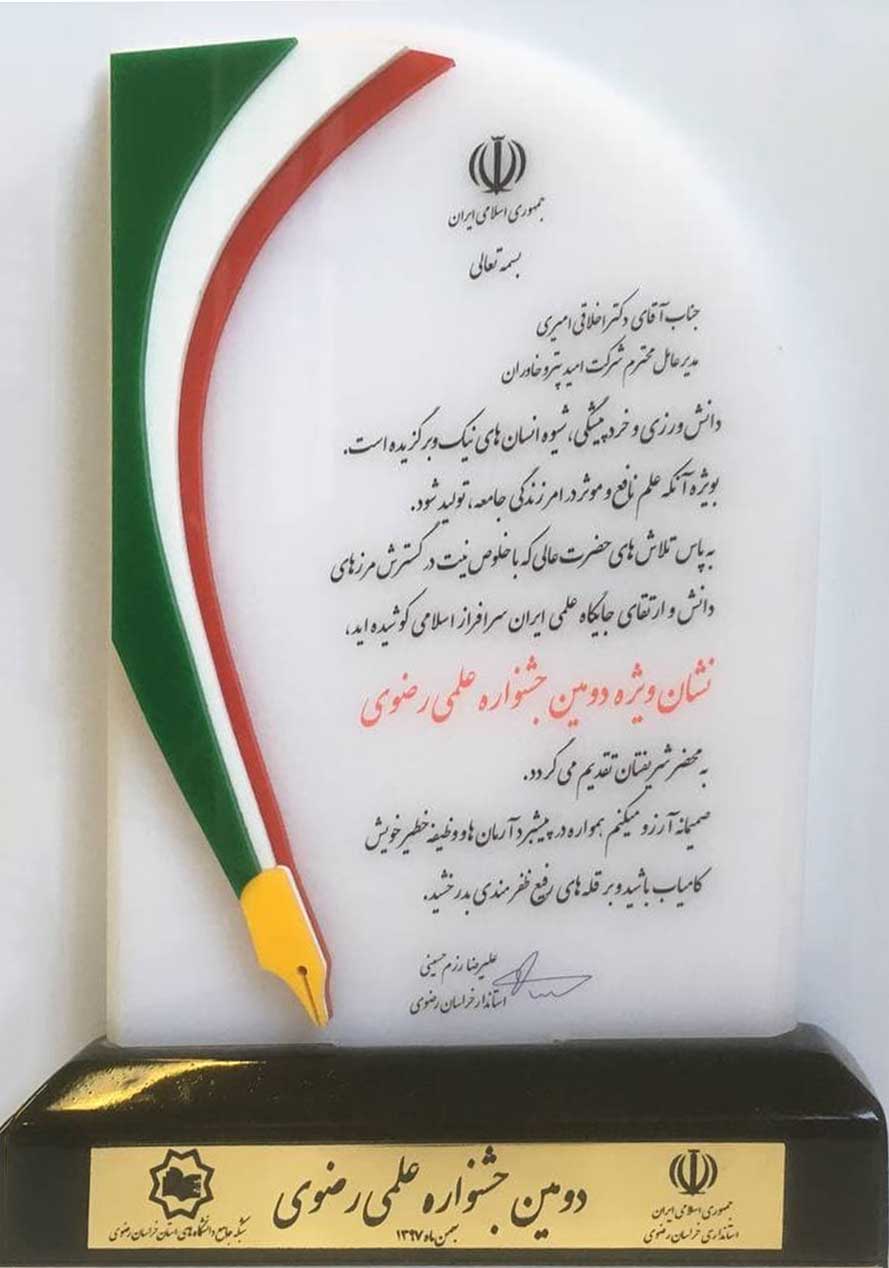 جمهوری اسلامی ایران
بسمه تعالی
جناب آقای دکتر اخلاقی امیری
مدیر عامل محترم شرکت امید پترو خاوران
دانش ورزی و خرد پیشگی، شیوه انسان های نیک و برگزیده است.
بویژه آنکه علم نافع و موثر در امر زندگی جامعه، تولید شود.
به پاس تلاش های حضرت عالی که با خلوص نیت در گسترش مرزهای
دانش و ارتقای جایگاه علمی ایران سرافراز اسلامی کوشیده اید،
نشان ویژه دومین جشنواره علمی رضوی
به محضر شریفتان تقدیم می گردد.
صمیمانه آرزو میکنم همواره در پیشبرد آرمان ها و وظیفه خطیر خویش
کامیاب باشید و بر قله های رفیع ظفرمندی بدرخشید.
علیرضا رزم حسینی
استاندار خراسان رضوی
جمهوری اسلامی ایران
استانداری خراسان رضوی
دومین جشنواره علمی رضوی
بهمن ماه ۱۳۹۷
شبکه جامع دانشگاه های استان خراسان رضوی